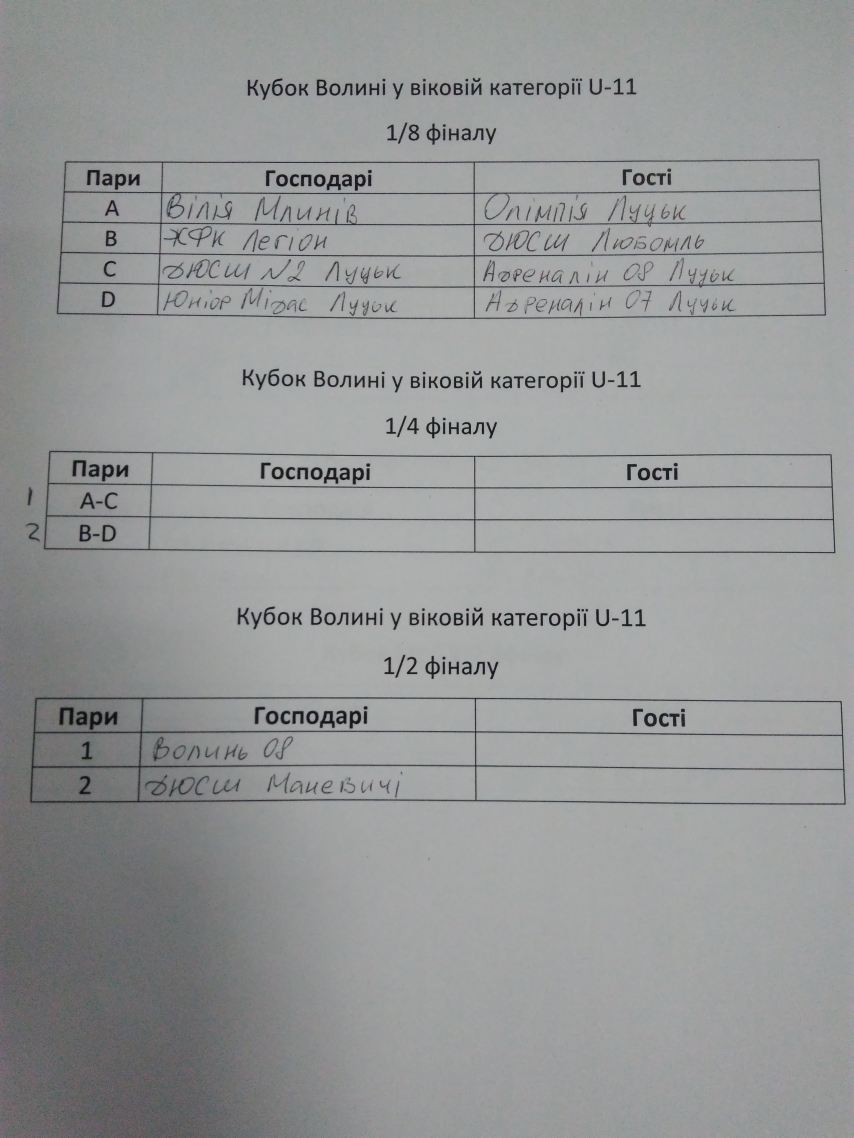 Кубок Волині у віковій категорії U-11
1/8 фіналу
Пари Господарі Гості
A Вілія Млинів Олімпія Луцьк
B ЖФК Легіон ДЮСШ Любомль
C ДЮСШ №2 Луцьк Адреналін 08 Луцьк
D Юніор Мідас Луцьк Адреналін 07 Луцьк
Кубок Волині у віковій категорії U-11
1/4 фіналу
Пари Господарі Гості
1 A-C
2 B-D
Кубок Волині у віковій категорії U-11
1/2 фіналу
Пари Господарі Гості
1 Волинь 08
2 ДЮСШ Маневичі